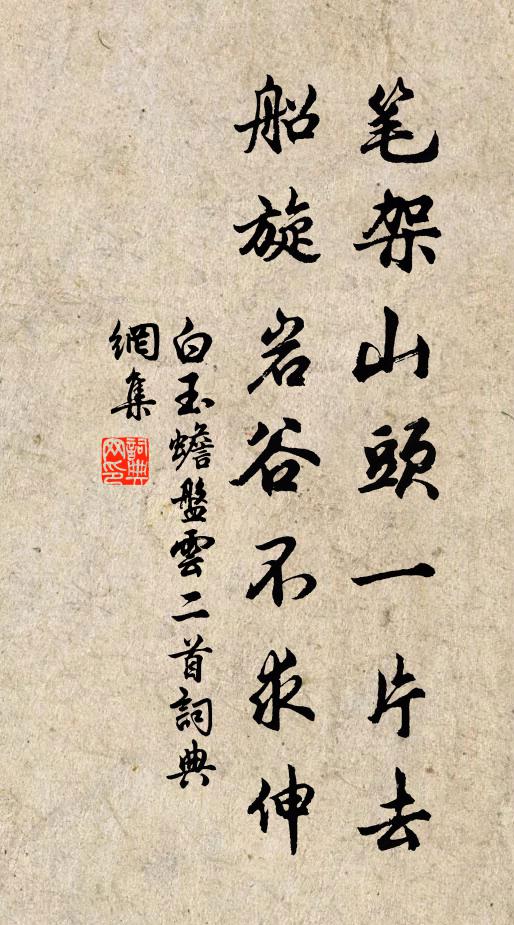 笔架山頭一片去
船旋岩谷不求伸
白玉蟾盤雲二首詞典
網集
詞典
网印